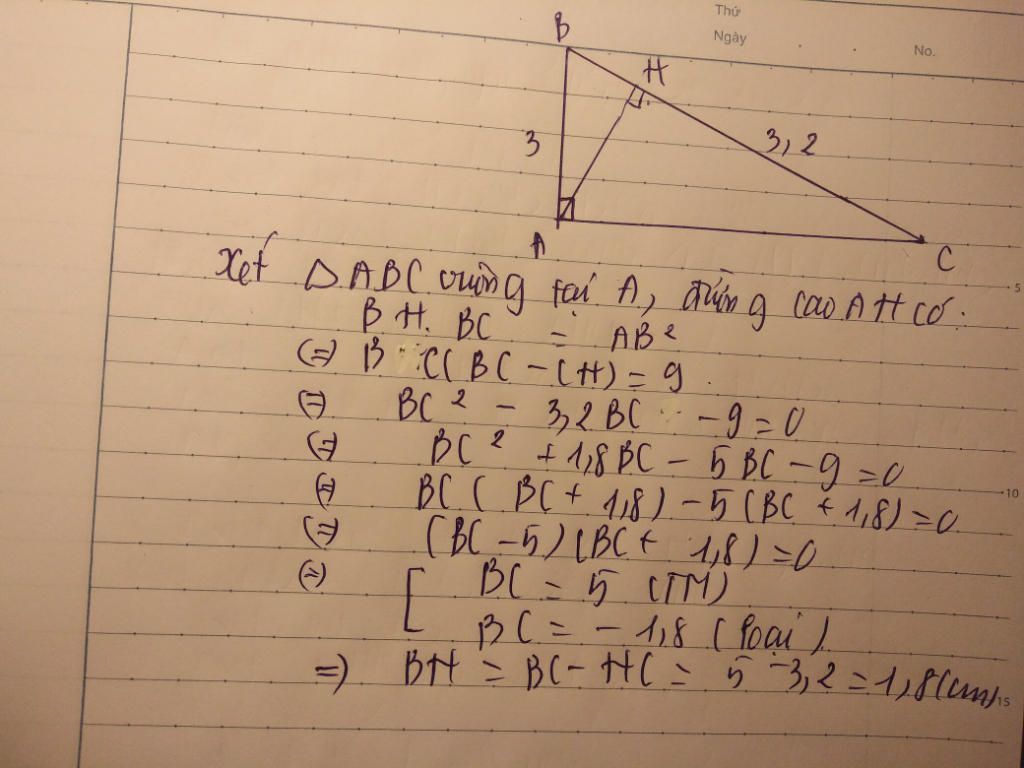 Thứ
Ngày . . No.
B
H
3
3,2
A
C
Xét △ABC vuông tại A, đường cao AH có:
BH. BC = AB²
(=) BC(BC - CH) = 9
(=) BC² - 3,2BC - 9 = 0
(=) BC² + 1,8BC - 5BC - 9 = 0
(=) BC(BC + 1,8) - 5(BC + 1,8) = 0
(=) (BC - 5)(BC + 1,8) = 0
(=) [ BC = 5 (TM)
BC = - 1,8 (loại)
=) BH = BC - HC = 5 - 3,2 = 1,8(cm)
5
10
15